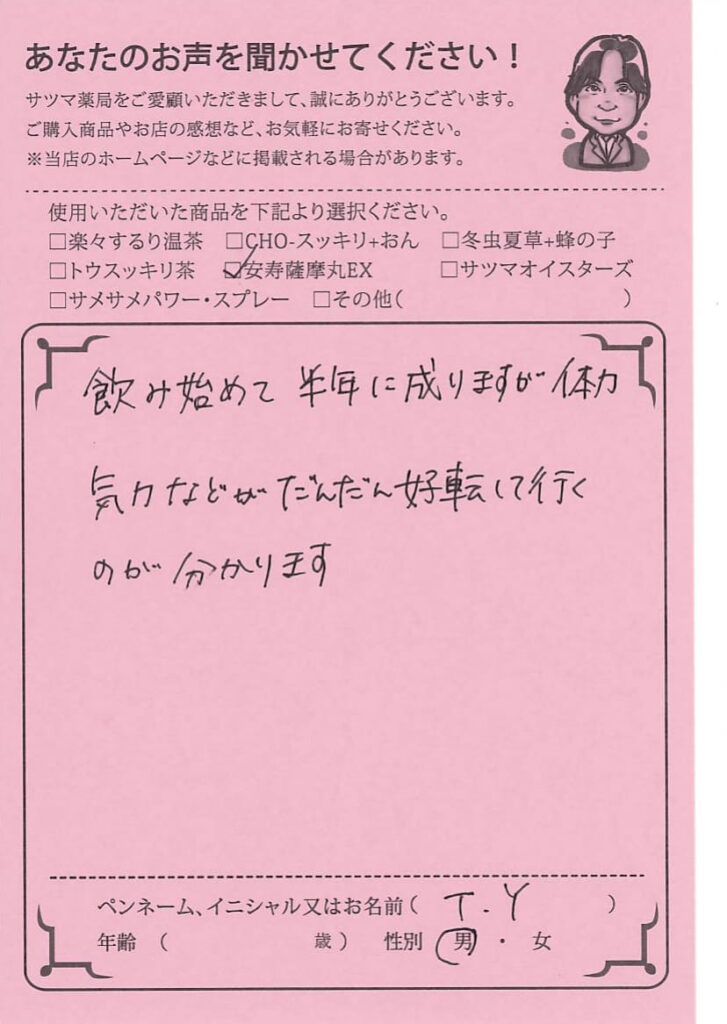 あなたのお声を聞かせてください！
サツマ薬局をご愛顧いただきまして、誠にありがとうございます。
ご購入商品やお店の感想など、お気軽にお寄せください。
※当店のホームページなどに掲載される場合があります。
使用いただいた商品を下記より選択ください。
□楽々するり温茶　□CHO-スッキリ+おん　□冬虫夏草+蜂の子
□トウスッキリ茶　☑安寿薩摩丸EX　□サツマオイスターズ
□サメサメパワー・スプレー　□その他（　　　）
飲み始めて 半年に成りますが 体力
気力などが だんだん好転して行く
のが 分かります
ペンネーム、イニシャル又はお名前（ T.Y ）
年齢　（　　　歳）　性別　男 ・ 女